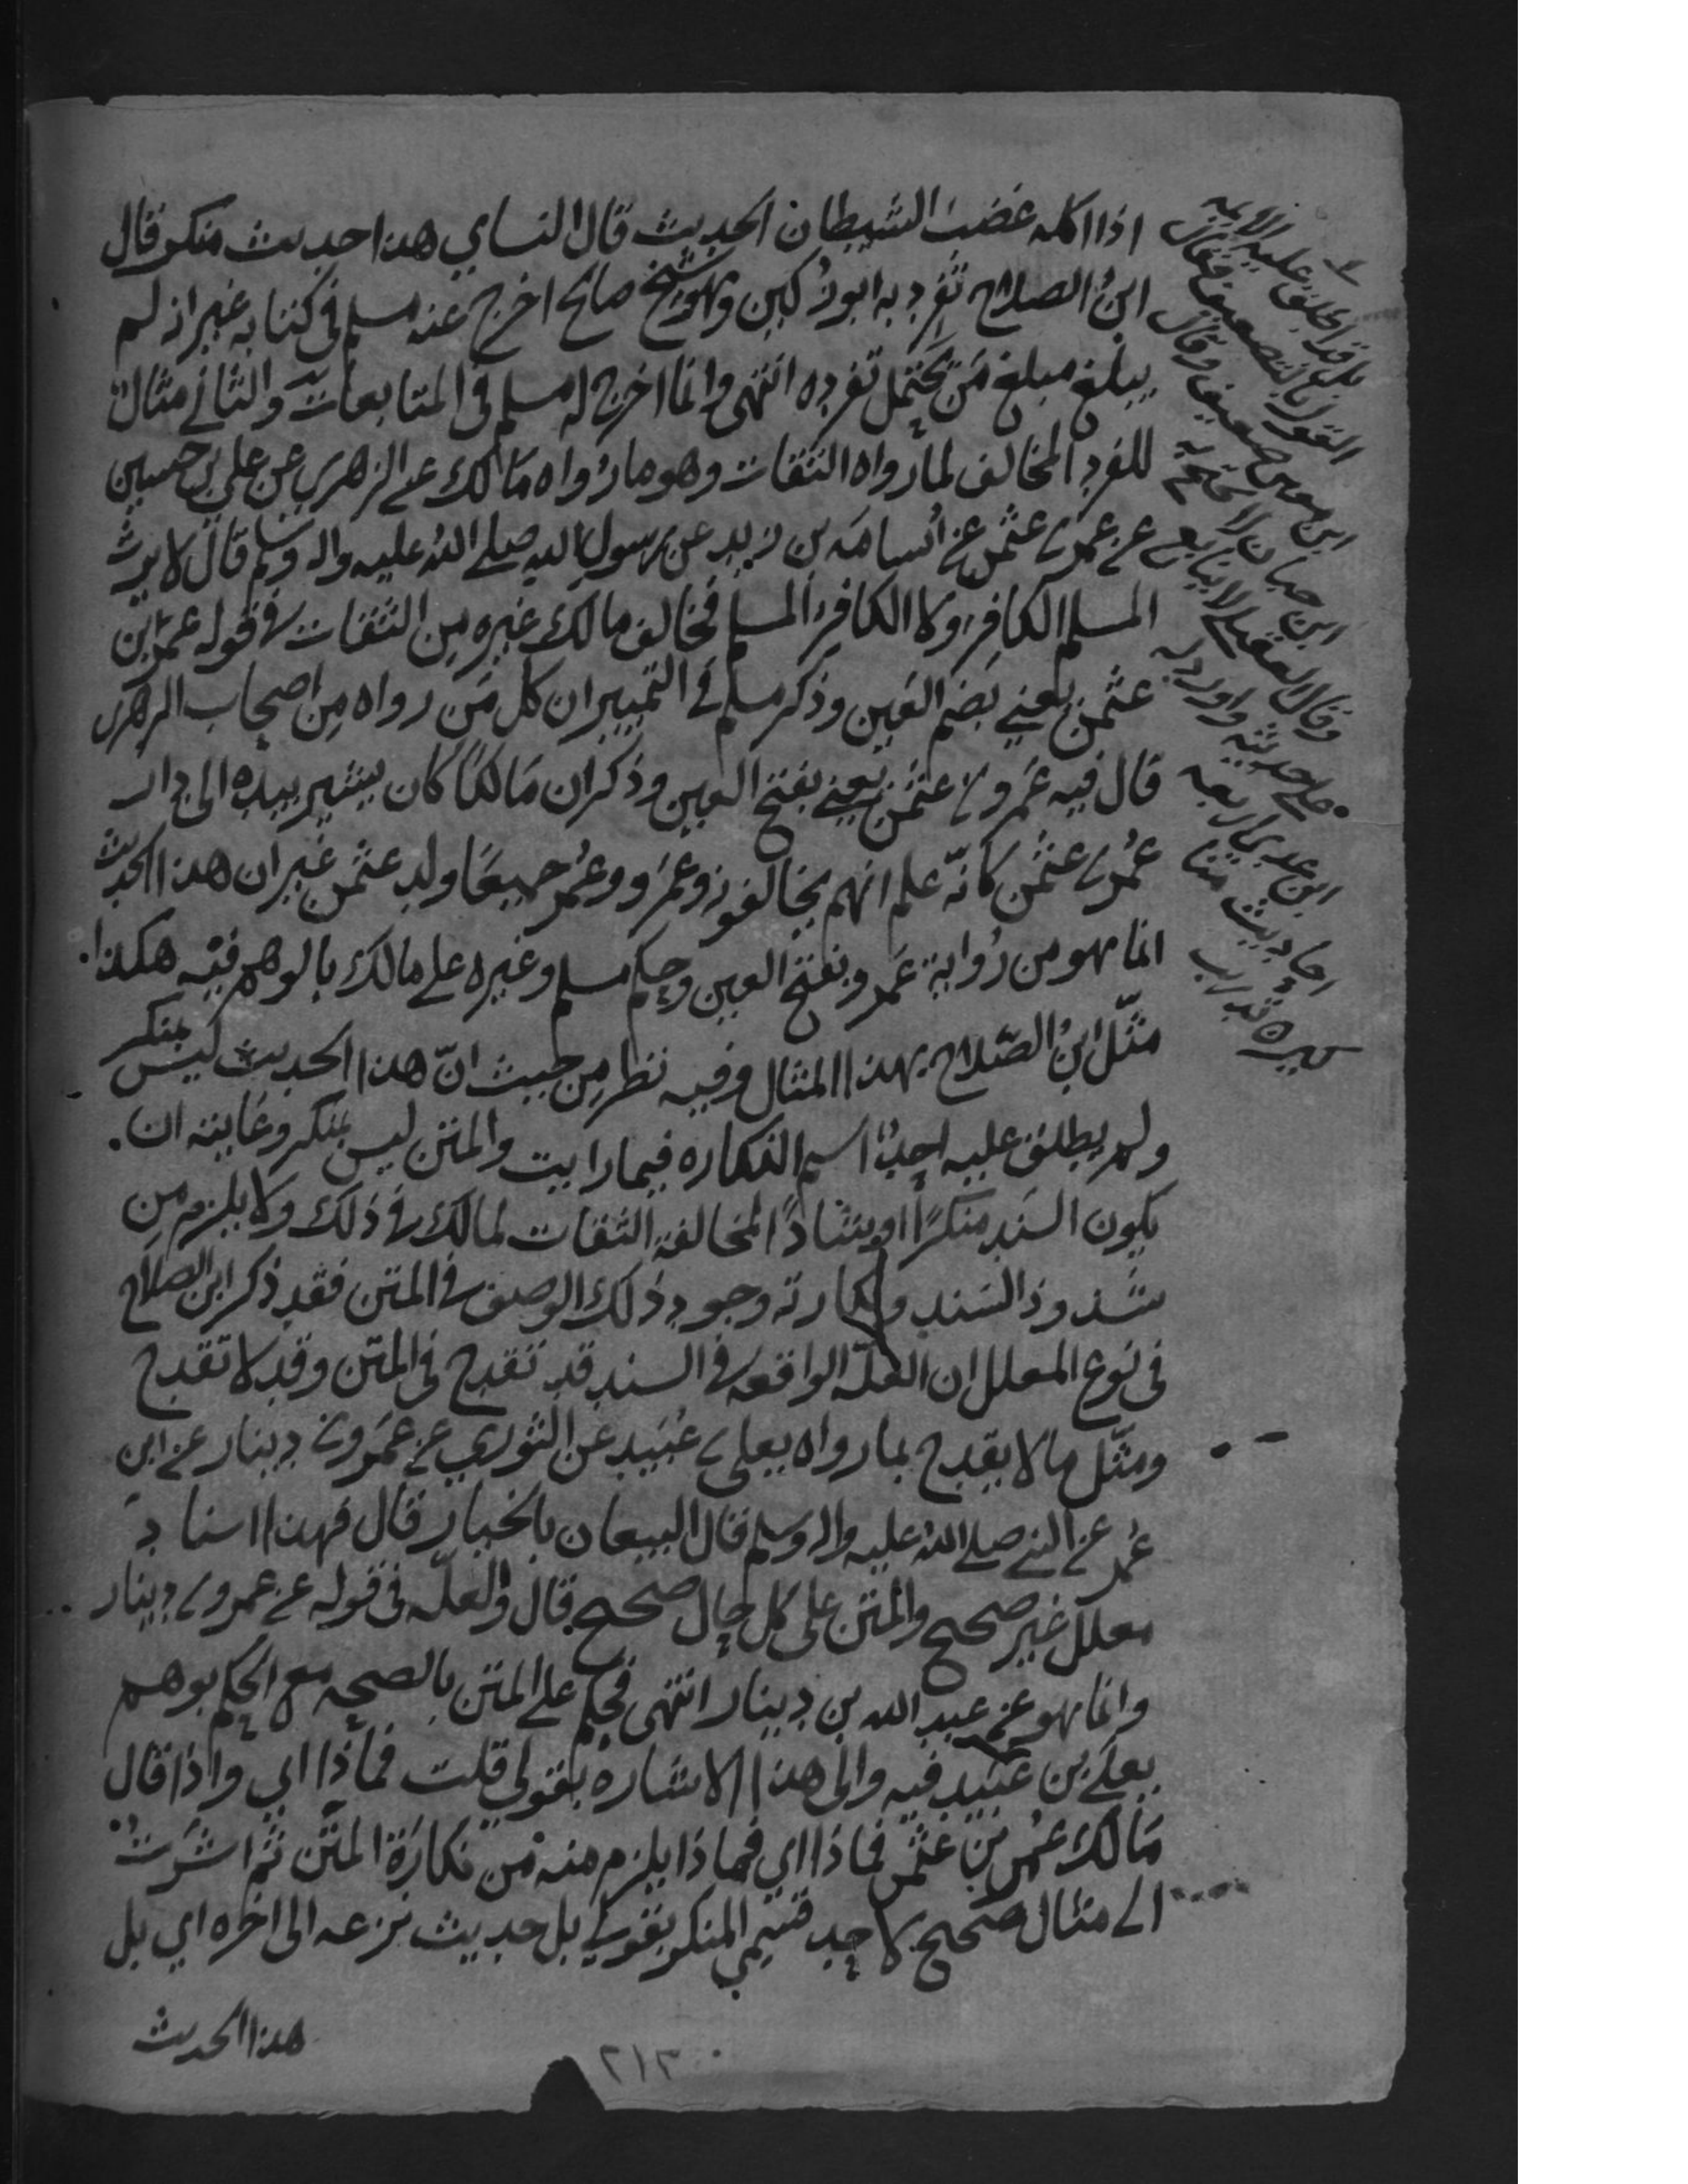 اذا اكله غضب الشيطان الحديث قال النساي هذا حديث منكر قال
ابنُ الصلاح تفرد به ابو زُكين وهو شيخ صالح اخرج عنه مسلم في كتابه غير انه لم
يبلغ مبلغ مَن يحتمل تفرده انتهى وانما اخرج له مسلم في المتابعات والثاني مثال
للفرد المخالف لما رواه الثقات وهو ما رواه مالك عن الزهري عن علي بن حسين
عن عمر بن عثمن عن اُسامة بن زيد عن رسول الله صلى الله عليه واله وسلم قال لا يرث
المسلم الكافر ولا الكافر المسلم فخالف مالك غيره مِن الثقات في قوله عمر بن
عثمن يعني بضم العين وذكر مسلم في التمييز ان كل مَن رواه مِن اصحاب الزهري
قال فيه عَمرو بن عثمن يعني بفتح العين وذكر ان مَالكًا كان يشير بيده الى دار
عُمر بن عثمن كانّه علم انهم يخالفونه وعَمرو وعُمر جميعًا ولد عثمن غير ان هذا الحديث
انما هو من رواية عَمرو بفتح العين وحكم مسلم وغيره على مالك بالوهم فيه هكذا
مثّل ابنُ الصّلاح بهذا المثال وفيه نظر مِن حيث انّ هذا الحديث ليس بمنكر
ولم يطلق عليه احدٌ اسم النكاره فيما رايت والمتن ليس بمنكر وغايته ان
يكون السند منكرًا او شاذًا لمخالفة الثقات لمالك في ذلك ولا يلزم مِن
شذوذ السَند ونكارته وجود ذلك الوصف في المتن فقد ذكر ابن الصلاح
في نوع المعلل ان العلّه الواقعه في السند قد تقدح في المتن وقد لا تقدح
ومثّل ما لا يقدح بما رواه يعلى بن عُبَيد عن الثوري عن عَمرو بن دينار عن ابن
عُمر عن النبي صلى الله عليه واله وسلم قال البيعان بالخيار قال فهذا اسناد
معلل غير صحيح والمتن على كل حال صحيح قال والعلّه في قوله عن عمرو بن دينار
وانما هو عن عبد الله بن دينار انتهى فحكم على المتن بالصحه مع الحكم بوهم
يعلى بن عُبَيد فيه والى هذا الاشاره بقولي قلت فماذا اي واذا قال
مَالك عُمر بن عثمن فماذا اي فماذا يلزم منه من نكارَة المتن ثم اشرتُ
الى مثال صحيح لاحد قسمي المنكر بقولي بل حديث نزعه الى اخره اي بل
هذا الحديث
بل قد اطلق عليه الايمه
القول بالتضعيف فقال
ابن معين ضعيف وقال
ابن حبان لا يحتج به
وقال العقيلي لا يتابع
على حديثه واورد له
ابن عدي اربعه
احاديث
تدريب
٢١٣